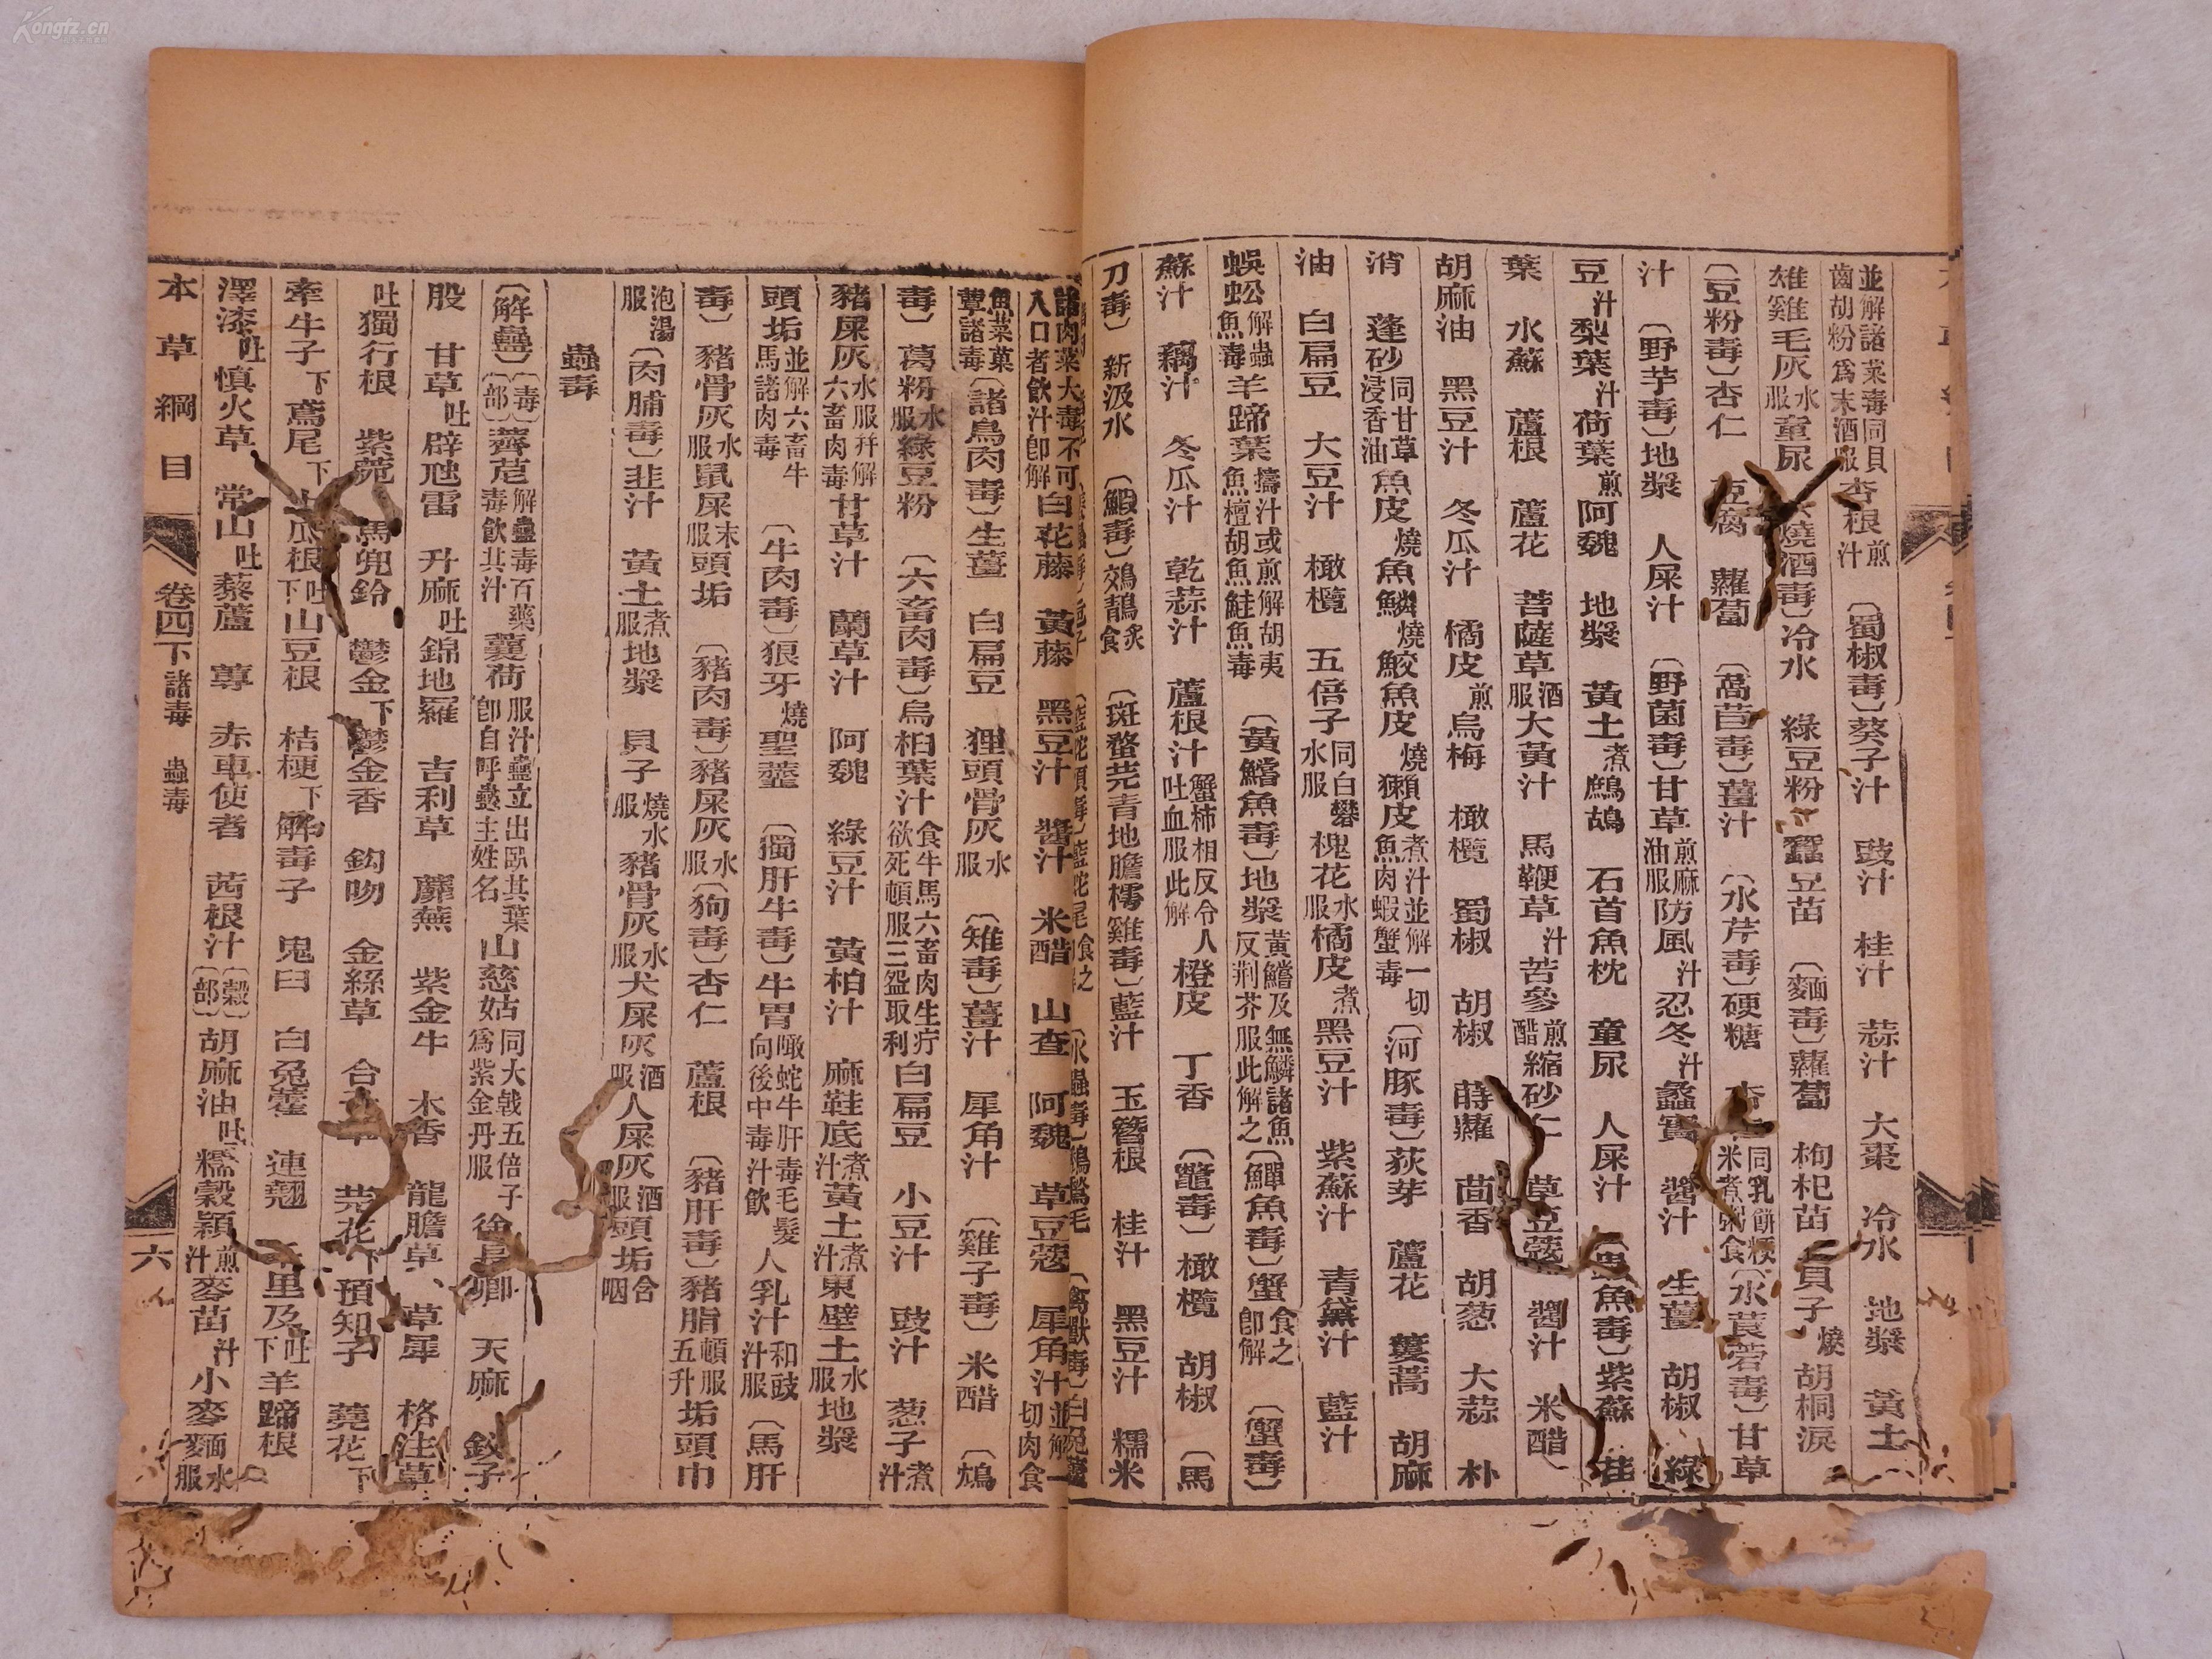 並解諸菜毒同貝齒胡粉為末酒服杏根煎汁 〔蜀椒毒〕葵子汁 豉汁 桂汁 蒜汁 大棗 冷水 地漿 黃土
雄雞毛灰水服童尿 燒酒毒〕冷水 綠豆粉 蠶豆苗 〔麵毒〕蘿蔔 枸杞苗 貝子燒 胡桐淚
〔豆粉毒〕杏仁 豆腐 蘿蔔 〔萵苣毒〕薑汁 〔水芹毒〕硬糖 杏仁同乳餅粳米煮粥食〔水莨菪毒〕甘草
汁 〔野芋毒〕地漿 人屎汁 〔野菌毒〕甘草煎麻油服防風汁忍冬汁蠡實 醬汁 生薑 胡椒 綠
豆汁梨葉汁荷葉煎阿魏 地漿 黃土煮鷓鴣 石首魚枕 童尿 人屎汁 〔蟲魚毒〕紫蘇 荏
葉 水蘇 蘆根 蘆花 菩薩草酒服大黃汁 馬鞭草汁苦參煎醋縮砂仁 草豆蔻 醬汁 米醋
胡麻油 黑豆汁 冬瓜汁 橘皮煎烏梅 橄欖 蜀椒 胡椒 蒔蘿 茴香 胡葱 大蒜 朴
消 蓬砂同甘草浸香油魚皮燒魚鱗燒鮫魚皮燒獺皮煮汁並解一切魚肉蝦蟹毒〔河豚毒〕荻芽 蘆花 蔞蒿 胡麻
油 白扁豆 大豆汁 橄欖 五倍子同白礬水服槐花水服橘皮煮黑豆汁 紫蘇汁 青黛汁 藍汁
蜈蚣解蟲魚毒羊蹄葉擣汁或煎解胡夷魚檀胡魚鮭魚毒 〔黃鱨魚毒〕地漿黃鱨及無鱗諸魚反荆芥服此解之〔鱓魚毒〕蟹食之卽解 〔蟹毒〕
蘇汁 藕汁 冬瓜汁 乾蒜汁 蘆根汁蟹柿相反令人吐血服此解橙皮 丁香 〔鼈毒〕橄欖 胡椒 〔馬
刀毒〕新汲水 〔鰕毒〕鵁鶄炙食 〔斑蝥芫青地膽樗雞毒〕藍汁 玉簪根 桂汁 黑豆汁 糯米
諸肉菜大毒不可入口者飲汁卽解白花藤 黃藤 黑豆汁 醬汁 米醋 山查 阿魏 草豆蔻 犀角汁並解一切肉食
魚菜菓蕈諸毒〔諸鳥肉毒〕生薑 白扁豆 狸頭骨灰水服 〔雉毒〕薑汁 犀角汁 〔雞子毒〕米醋 〔鴆
毒〕葛粉水服綠豆粉 〔六畜肉毒〕烏桕葉汁食牛馬六畜肉生疔欲死頓服三盌取利白扁豆 小豆汁 豉汁 葱子煮汁
豬屎灰水服幷解六畜肉毒甘草汁 蘭草汁 阿魏 綠豆汁 黃柏汁 麻鞋底煮汁黃土煮汁東壁土水服地漿
頭垢並解六畜牛馬諸肉毒 〔牛肉毒〕狼牙燒聖虀 〔獨肝牛毒〕牛胃噉蛇牛肝毒毛髮向後中毒汁飲人乳汁和豉汁服〔馬肝
毒〕豬骨灰水服鼠屎末服頭垢 〔豬肉毒〕豬屎灰水服〔狗毒〕杏仁 蘆根 〔豬肝毒〕豬脂頓服五升垢頭巾
泡湯服〔肉脯毒〕韭汁 黃土煮服地漿 貝子燒水服豬骨灰水服犬屎灰酒服人屎灰酒服頭垢含咽
蟲毒
〔解蠱〕〔毒部〕薺苨解蠱毒百藥毒飲其汁蘘荷服汁蠱立出臥其葉卽自呼蠱主姓名山慈姑同大戟五倍子為紫金丹服徐長卿 天麻 釵子
股 甘草吐辟虺雷 升麻吐錦地羅 吉利草 蘼蕪 紫金牛 木香 龍膽草 草犀 格注草
吐獨行根 紫菀 馬兜鈴 鬱金下鬱金香 鈎吻 金絲草 合子草 芫花下預知子 蕘花下
牽牛子下鳶尾下土瓜根吐下山豆根 桔梗下解毒子 鬼臼 白兔藿 連翹 千里及吐下羊蹄根
澤漆吐慎火草 常山吐藜蘆 蓴 赤車使者 茜根汁〔穀部〕胡麻油吐糯穀穎煎汁麥苗汁小麥麵水服
本草綱目 卷四下諸毒 蟲毒 六
Kongfz.cn